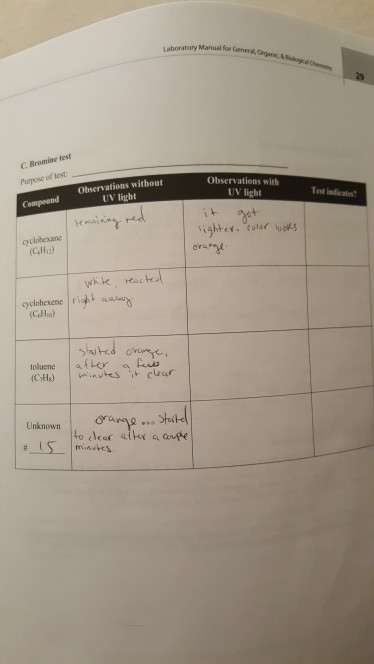 Laboratory Manual for General, Organic, & Biological Chemistry
29
C. Bromine test
Purpose of test:
Compound
Observations without
UV light
Observations with
UV light
Test indicates?
cyclohexane
(C₆H₁₂)
remaining red
it got
lighter. color looks
orange.
cyclohexene
(C₆H₁₀)
white, reacted
right away
toluene
(C₇H₈)
started orange,
after a few
minutes it clear
Unknown
# 15
orange... started
to clear after a couple
minutes